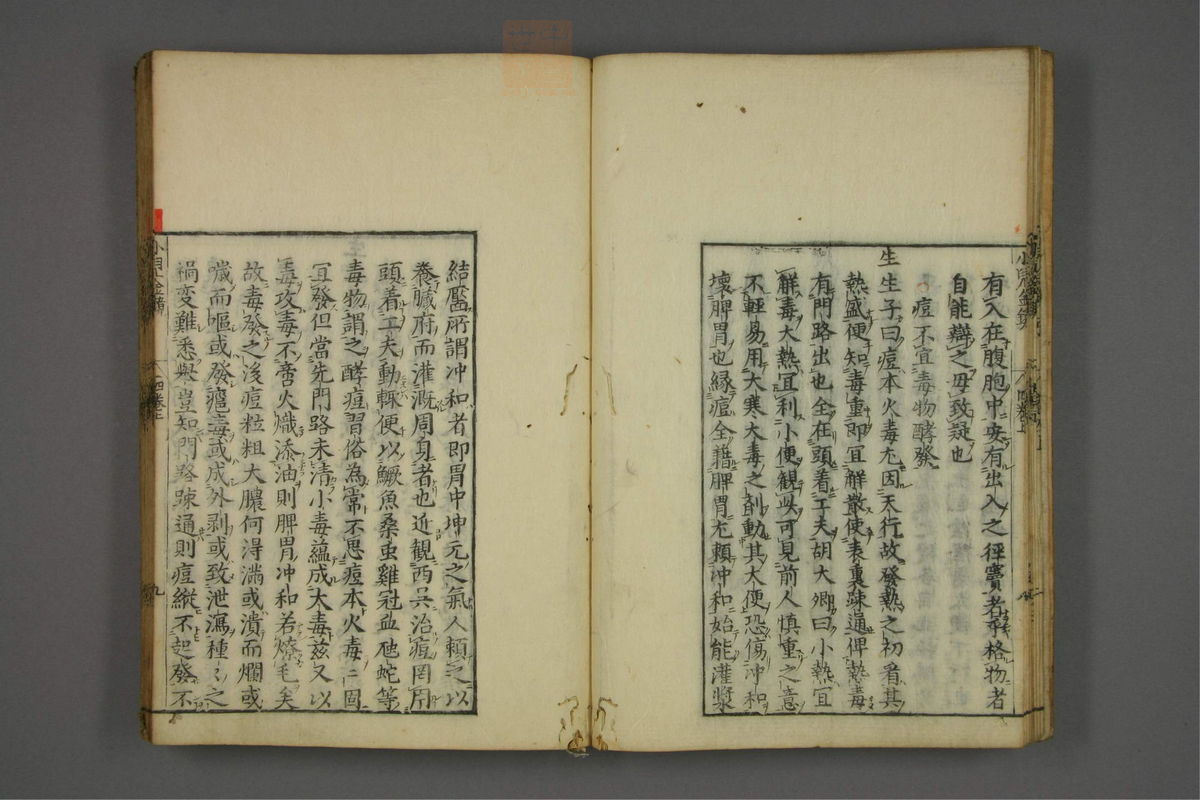 有入在腹胞中安有出入之徑竇者乎格物者
自能辯之毋致疑也
痘不宜毒物酵發
生生子曰痘本火毒尤因天行故發熱之初看其
熱盛便知毒重即宜解散使表裏疎通俾熱毒
有門路出也全在頭着工夫胡大卿曰小熱宜
解毒大熱宜利小便観此可見前人慎重之意
不輕易用大寒大毒之剤動其大便恐傷冲和
壊脾胃也縁痘全藉脾胃尤頼冲和始能灌漿
結靨所謂冲和者即胃中坤元之氣人頼之以
養臓府而灌漑周身者也近観西呉治痘罔
頭着工夫動輒便以鱖魚桑虫雞冠血虺蛇等
毒物謂之酵痘習俗為常不思痘本火毒〻固
宜發但當先門路未清小毒蘊成大毒茲又以
毒攻毒不啻火熾添油則脾胃冲和若燎毛矣
故毒發之後痘粒粗大膿何得満或潰而爛或
噦而嘔或發癰毒或成外剥或致泄瀉種〻之
禍変難悉與豈知門路疎通則痘縦不起發不